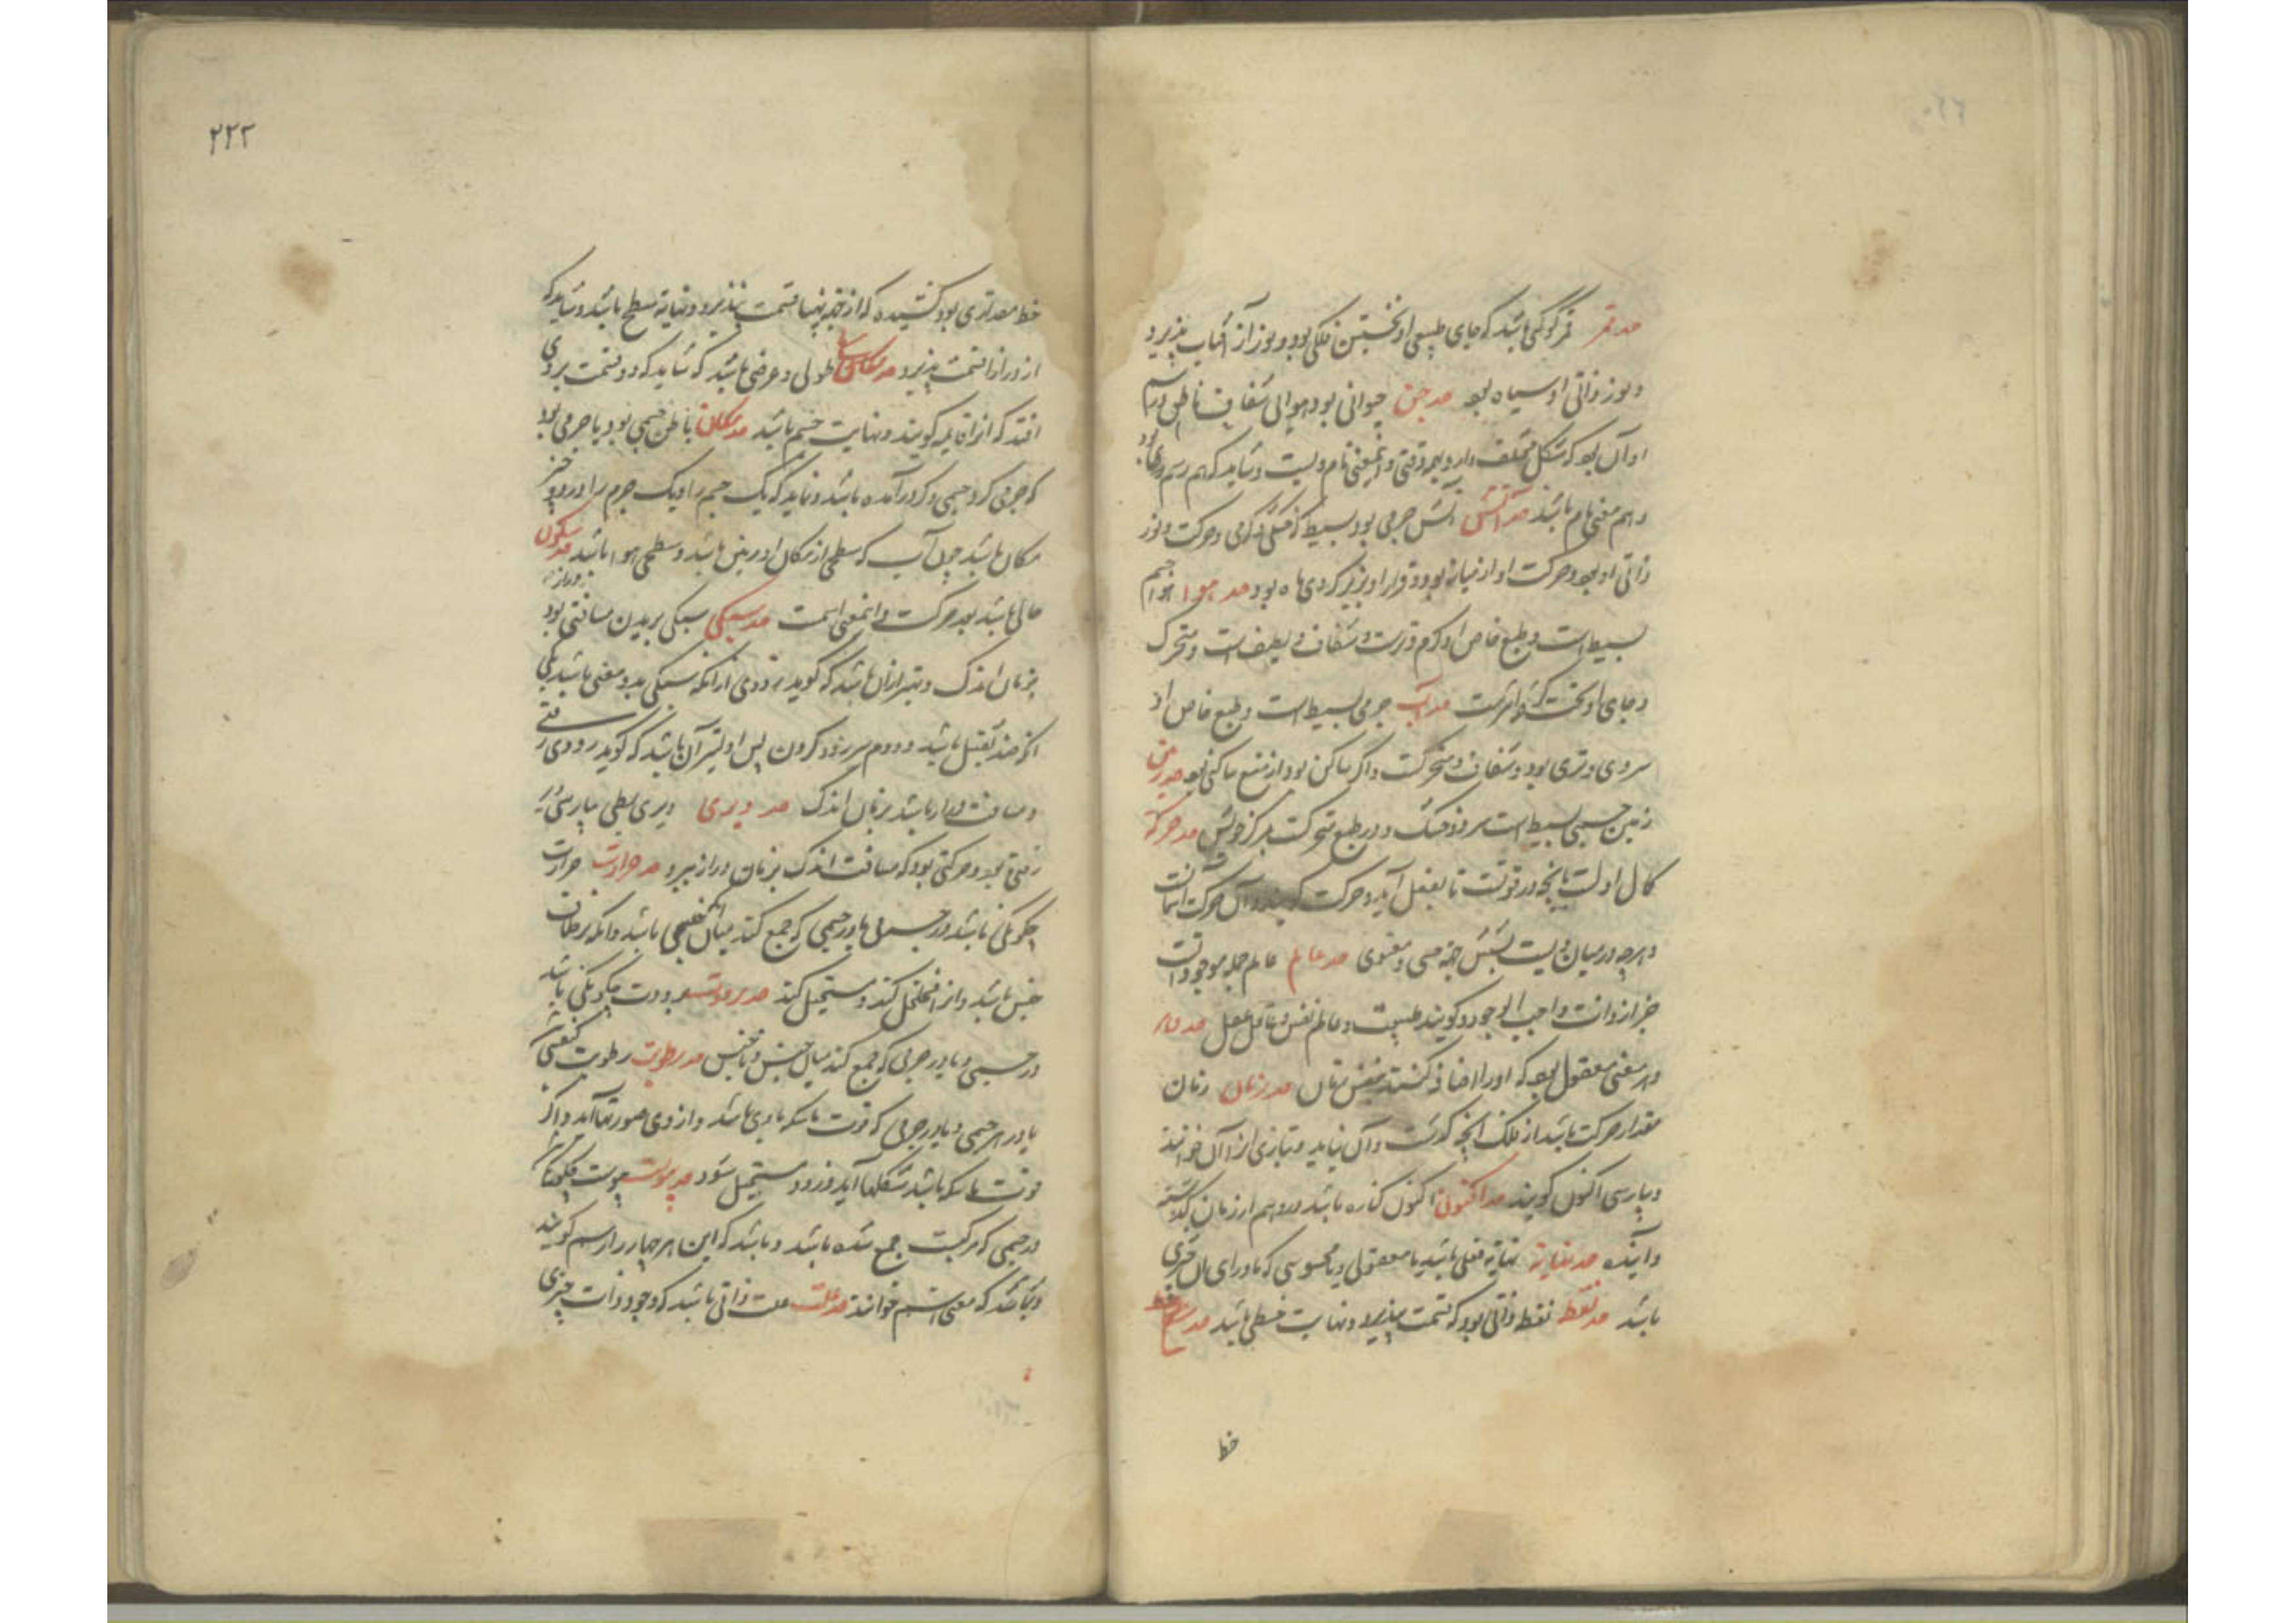 حد قمر قمر کوکبی باشد که جای طبیعی او نخستین فلکی بود و نور از آفتاب پذیرد
و نور ذاتی او سیاه بود حد جن حیوانی بود هوائی شفاف ناطق و رسم
او آن بود که شکل مختلف دارد بهر وقتی و معنی نام ویست و شاید که هم رسم وی بود
و هم معنی نام باشد حد آتش آتش جرمی بود بسیط گرمی و حرکت و نور
ذاتی او بود و حرکت او از میانه بود و قرار او بزیر کره ماه بود حد هوا هوا جسم
بسیط است و طبع خاص او گرم و ترست و شفاف و لطیف است و متحرک
و جای او تحت کره آتش است حد آب جرمی بسیط است و طبع خاص او
سردی و تری بود و شفاف و متحرکست و اگر ساکن بود از منع ساکن بود حد زمین
زمین جسمی بسیط است سرد و خشک و در طبع متحرکست بمرکز خویش حد حرکة
کمال اولست بآنچه در قوتست تا بفعل آید و حرکت گویند و آن حرکت آسمانست
و هرچه در میان ویست حسی و معنوی حد عالم عالم جمله موجوداتست
جز از ذات واجب الوجود و گویند طبیعت و عالم نفس و عالم عقل حد
و هر معنی معقول بود که او را اضافه کنند بنفس زمان حد زمان زمان
مقدار حرکت باشد از فلک آنچه گذشت و آن نیاید و بتازی او را آن خوانند
و بپارسی اکنون گویند حد اکنون اکنون کناره باشد در وهم از زمان گذشته
و آینده حد نهایة نهایة فعلی باشد یا معقولی و یا محسوسی که ماورای آن چیزی
باشد حد نقطه نقطه ذاتی بود که قسمت نپذیرد و نهایت خطی باشد حد خط
خط
۲۲۳
خط مقداری بود کشیده که از پهنا قسمت نپذیرد و نهایة سطح باشد و شاید که
از درازا قسمت پذیرد حد طولی و عرضی باشد که شاید که دو قسمت بروی
افتد که او را قایمه گویند و نهایت جسم باشد حد مکان باطن جسمی بود یا جرمی بود
که جرمی گرد جسمی و گرد درآمده باشد و نباید که یک جسم را و یک جرم را دو چیز
مکان باشد چون آب که سطحی از مکان او زمین باشد و سطحی هوا باشد حد سکون
حالی باشد بعد حرکت و معنی است حد سبکی سبکی بریدن مسافتی بود دراز
بزمان اندک و بهتر از آن باشد که گوید زودی از آنکه سبکی بدو معنی باشد یکی
آنکه ضد ثقیل باشد و دوم سر زود کردن پس اولیتر آن باشد که گوید زودی رفتی
و مسافت دراز باشد بزمان اندک حد دیری دیری بطی بپارسی دیر
رفتی بود و حرکتی بود که مسافت اندک بزمان دراز ببرد حد حرارت حرارت
چگونگی باشد در جسمی یا در جرمی که جمع کند میان باشد و آنکه نه
جنس باشد و از او تحلیل کند و مستحیل کند حد برودت برودت چگونگی باشد
در جسمی و یا در جرمی که جمع کند میان جنس و ناجنس حد رطوبت رطوبت کیفیتی باشد
یا در هر جسمی و یا در جرمی که قوت ماسکه با وی باشد و از وی صورتها آید و اگر
قوت ماسکه باشد شکلها آید و زود مستحیل شود حد یبوست یبوست چگونگی باشد
در جسمی که مرکبست جمع شده باشد و باشد که این هر چهار را رسم گویند
و باشد که معنی اسم خوانند حد علت علت ذاتی باشد که وجود ذات چیزی